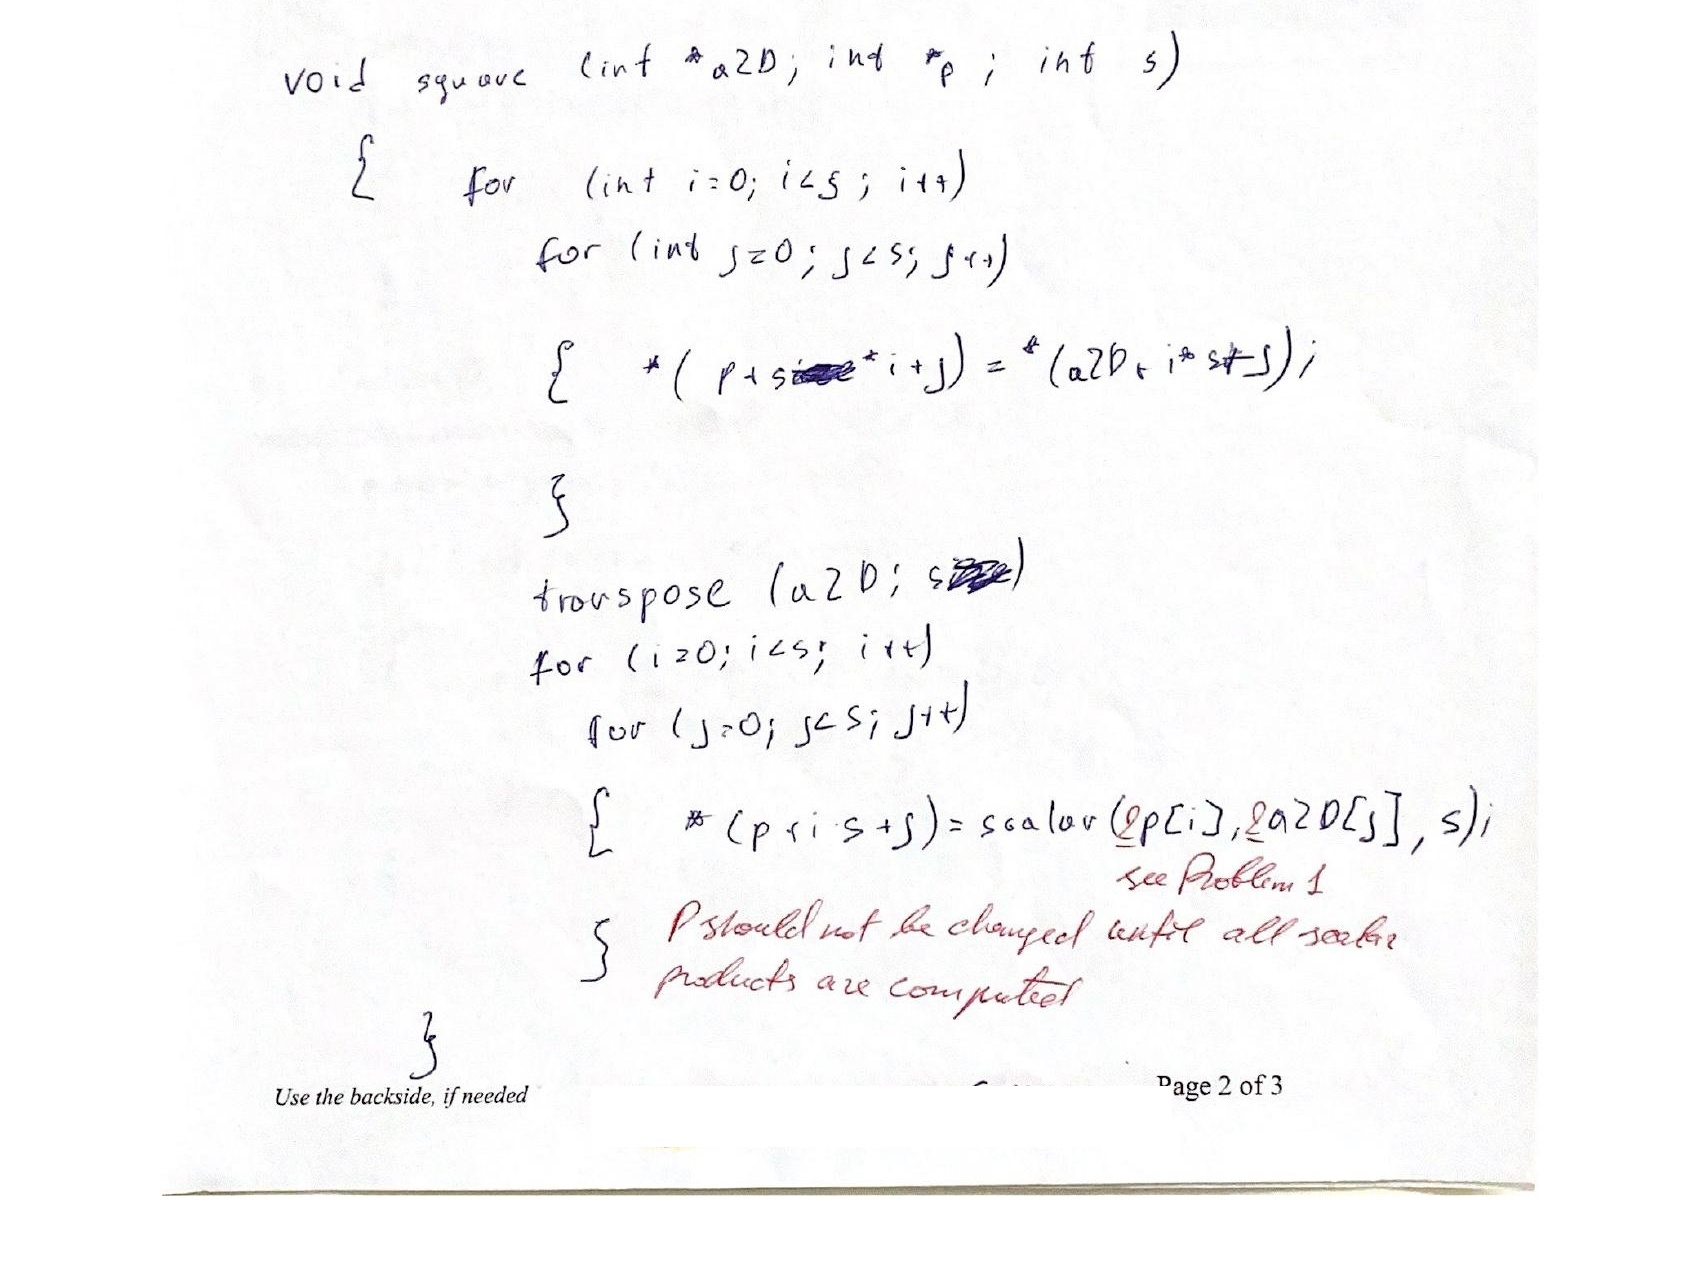 void square (int *a2D; int *p ; int s)
{ for (int i=0; i<s ; i++)
for (int j=0; j<s; j++)
{ *( p+s*i+j) = *(a2D+i*s+j);
}
transpose (a2D; s)
for (i=0; i<s; i++)
for (j=0; j<s; j++)
{ *(p+i·s+j)= scalar(&p[i],&a2D[j], s);
see Problem 1
} P should not be changed until all scalar
products are computed
}
Use the backside, if needed Page 2 of 3